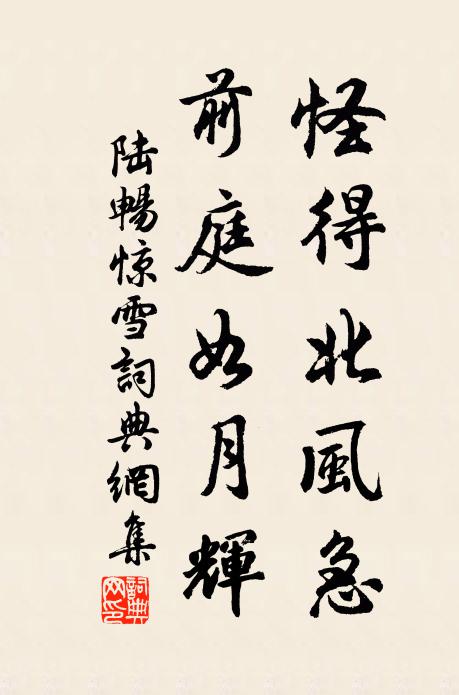 怪得北風急
前庭如月輝
陸暢惊雪詞典網集
詞典網印